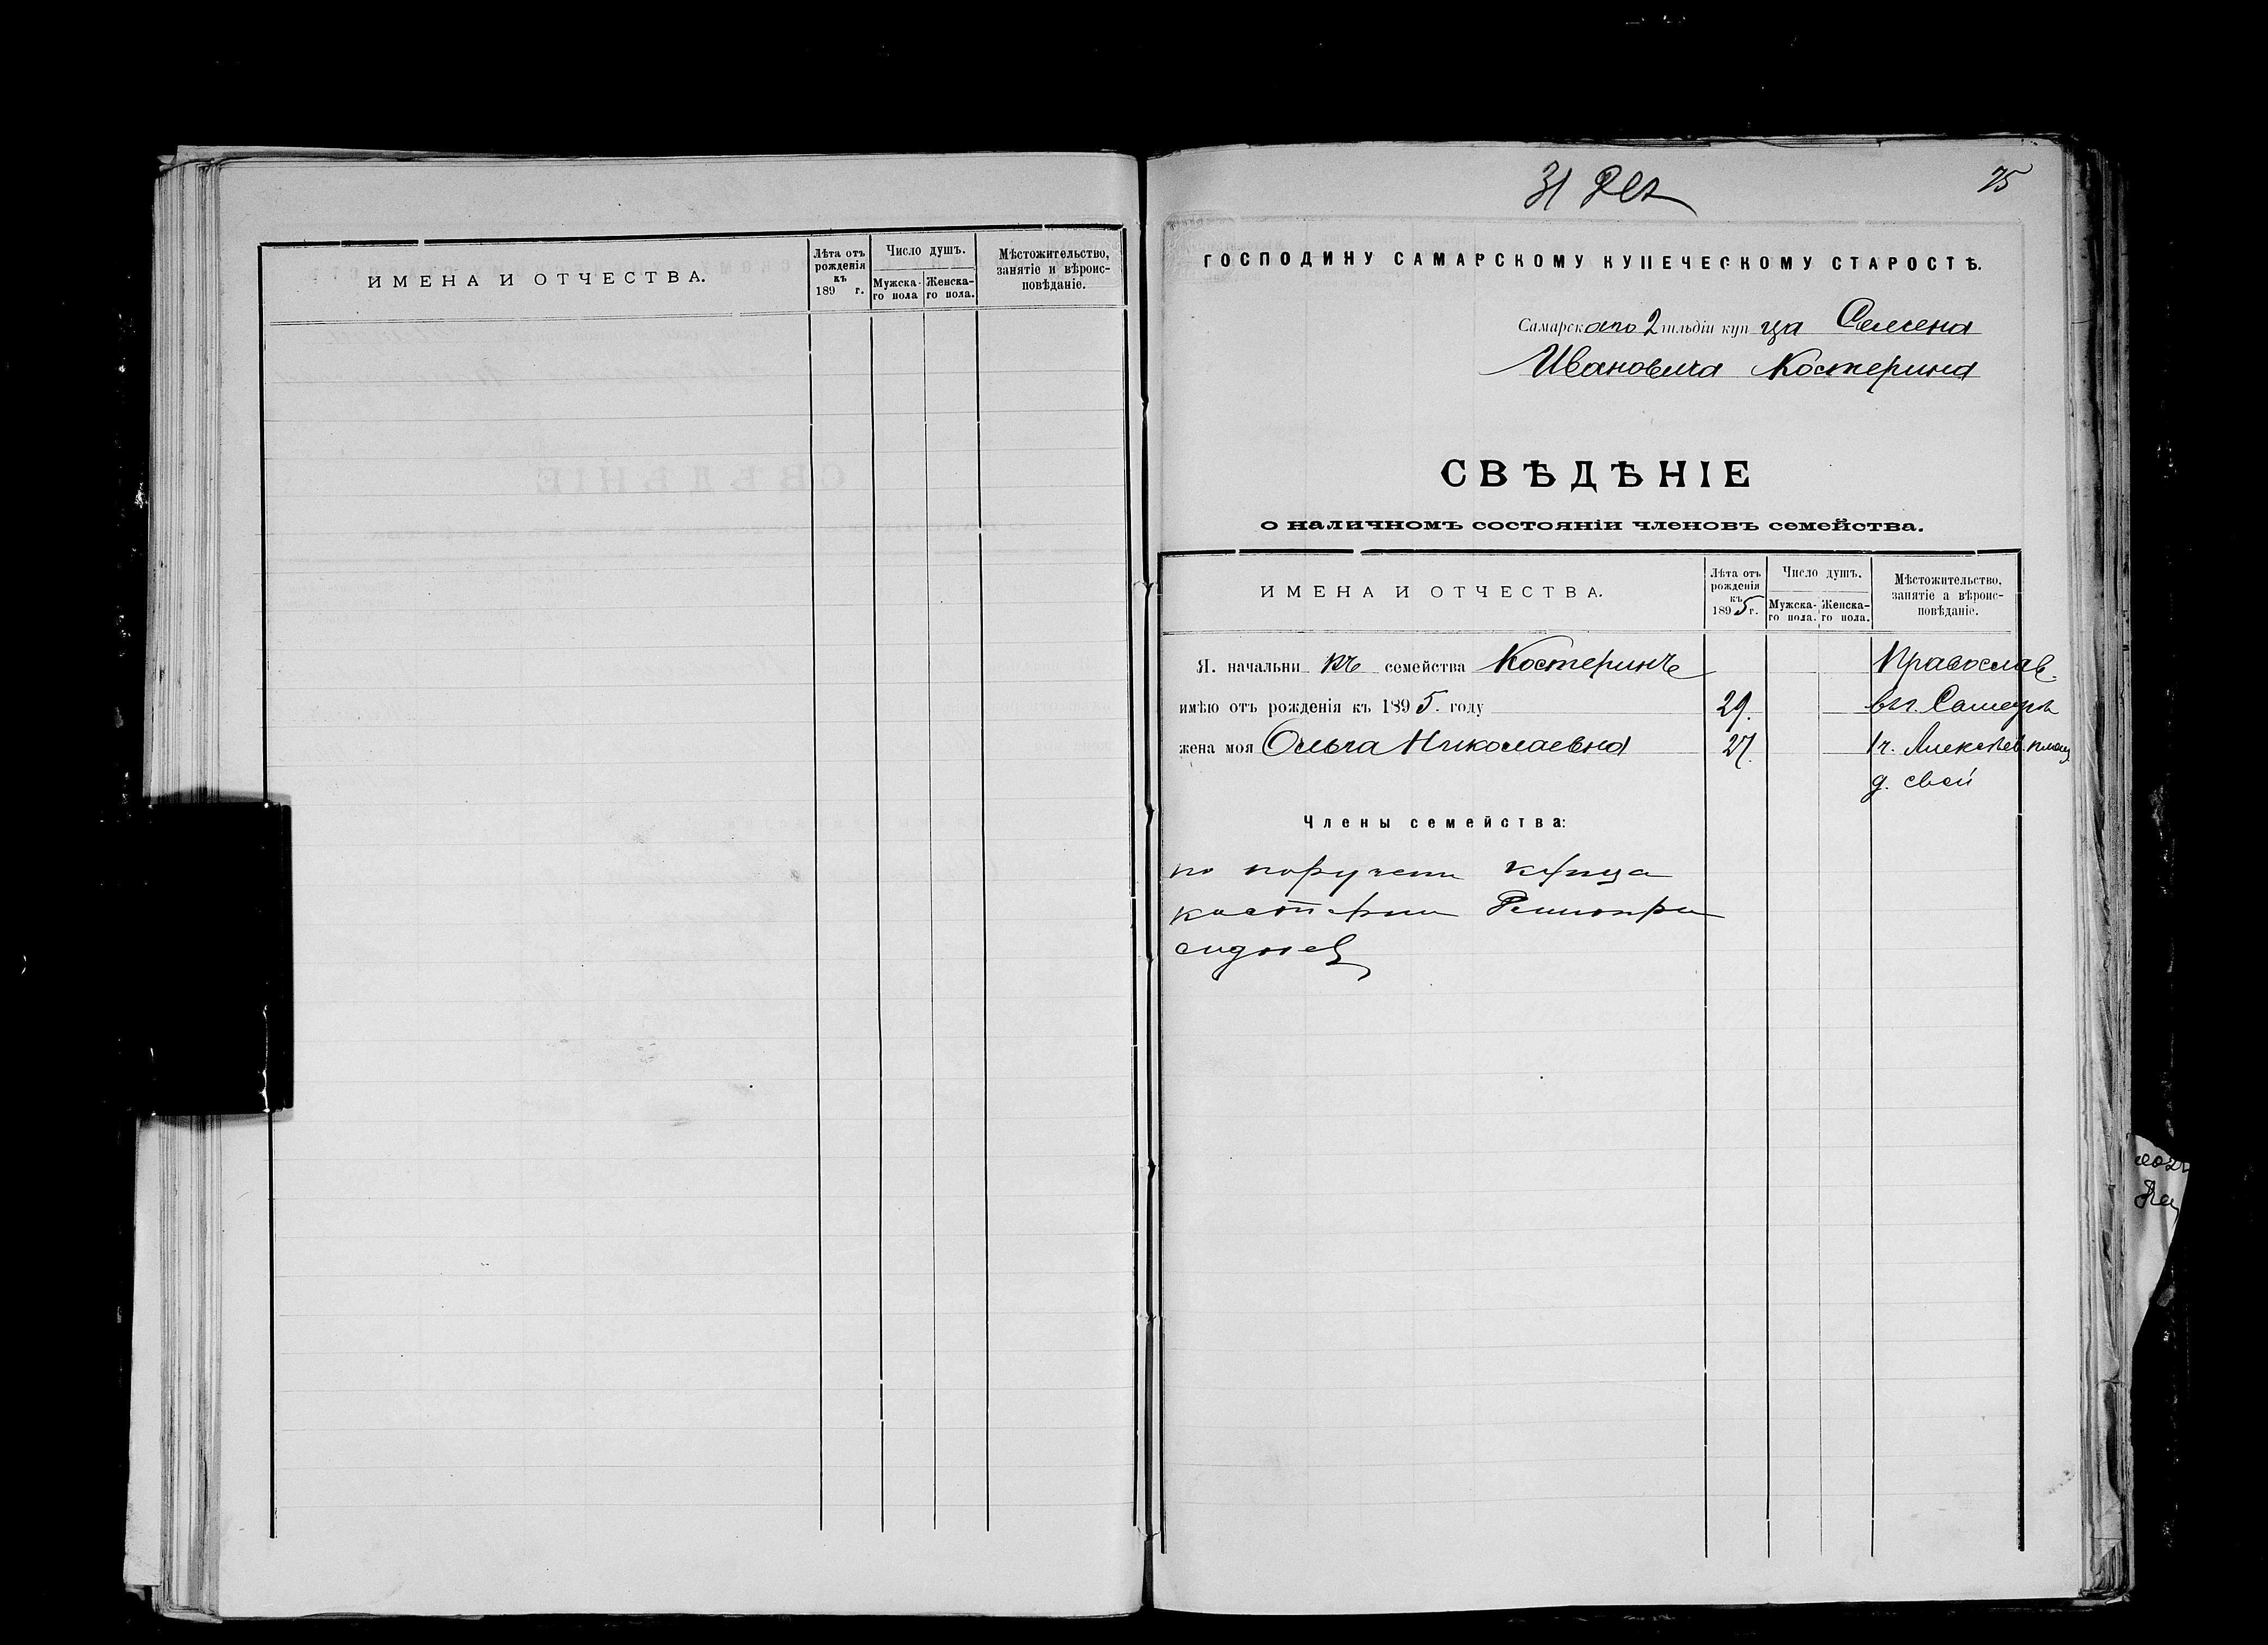 ИМЕНА И ОТЧЕСТВА.
Лѣта отъ
рожденія
къ
189 г.
Число душъ.
Мужска-
го пола
Женска-
го пола.
Мѣстожительство,
занятіе и вѣроис-
повѣданіе.
31 Дек
75
ГОСПОДИНУ САМАРСКОМУ КУПЕЧЕСКОМУ СТАРОСТѢ.
Самарскаго 2 гильдіи купца Семена
Ивановича Костерина
СВѢДѢНІЕ
о наличномъ состояніи членовъ семейства.
ИМЕНА И ОТЧЕСТВА.
Лѣта отъ
рожденія
къ
1895 г.
Число душъ.
Мужска-
го пола.
Женска-
го пола.
Мѣстожительство,
занятіе а вѣроис-
повѣданіе.
Я. начальникъ семейства Костеринъ
Православ.
имѣю отъ рожденія къ 1895. году 29.
въ г. Самарѣ
жена моя Ольга Николаевна 27.
1 ч. Алексѣев. площ
д. свой
Члены семейства:
по поручени купца
костерин
сидоnев